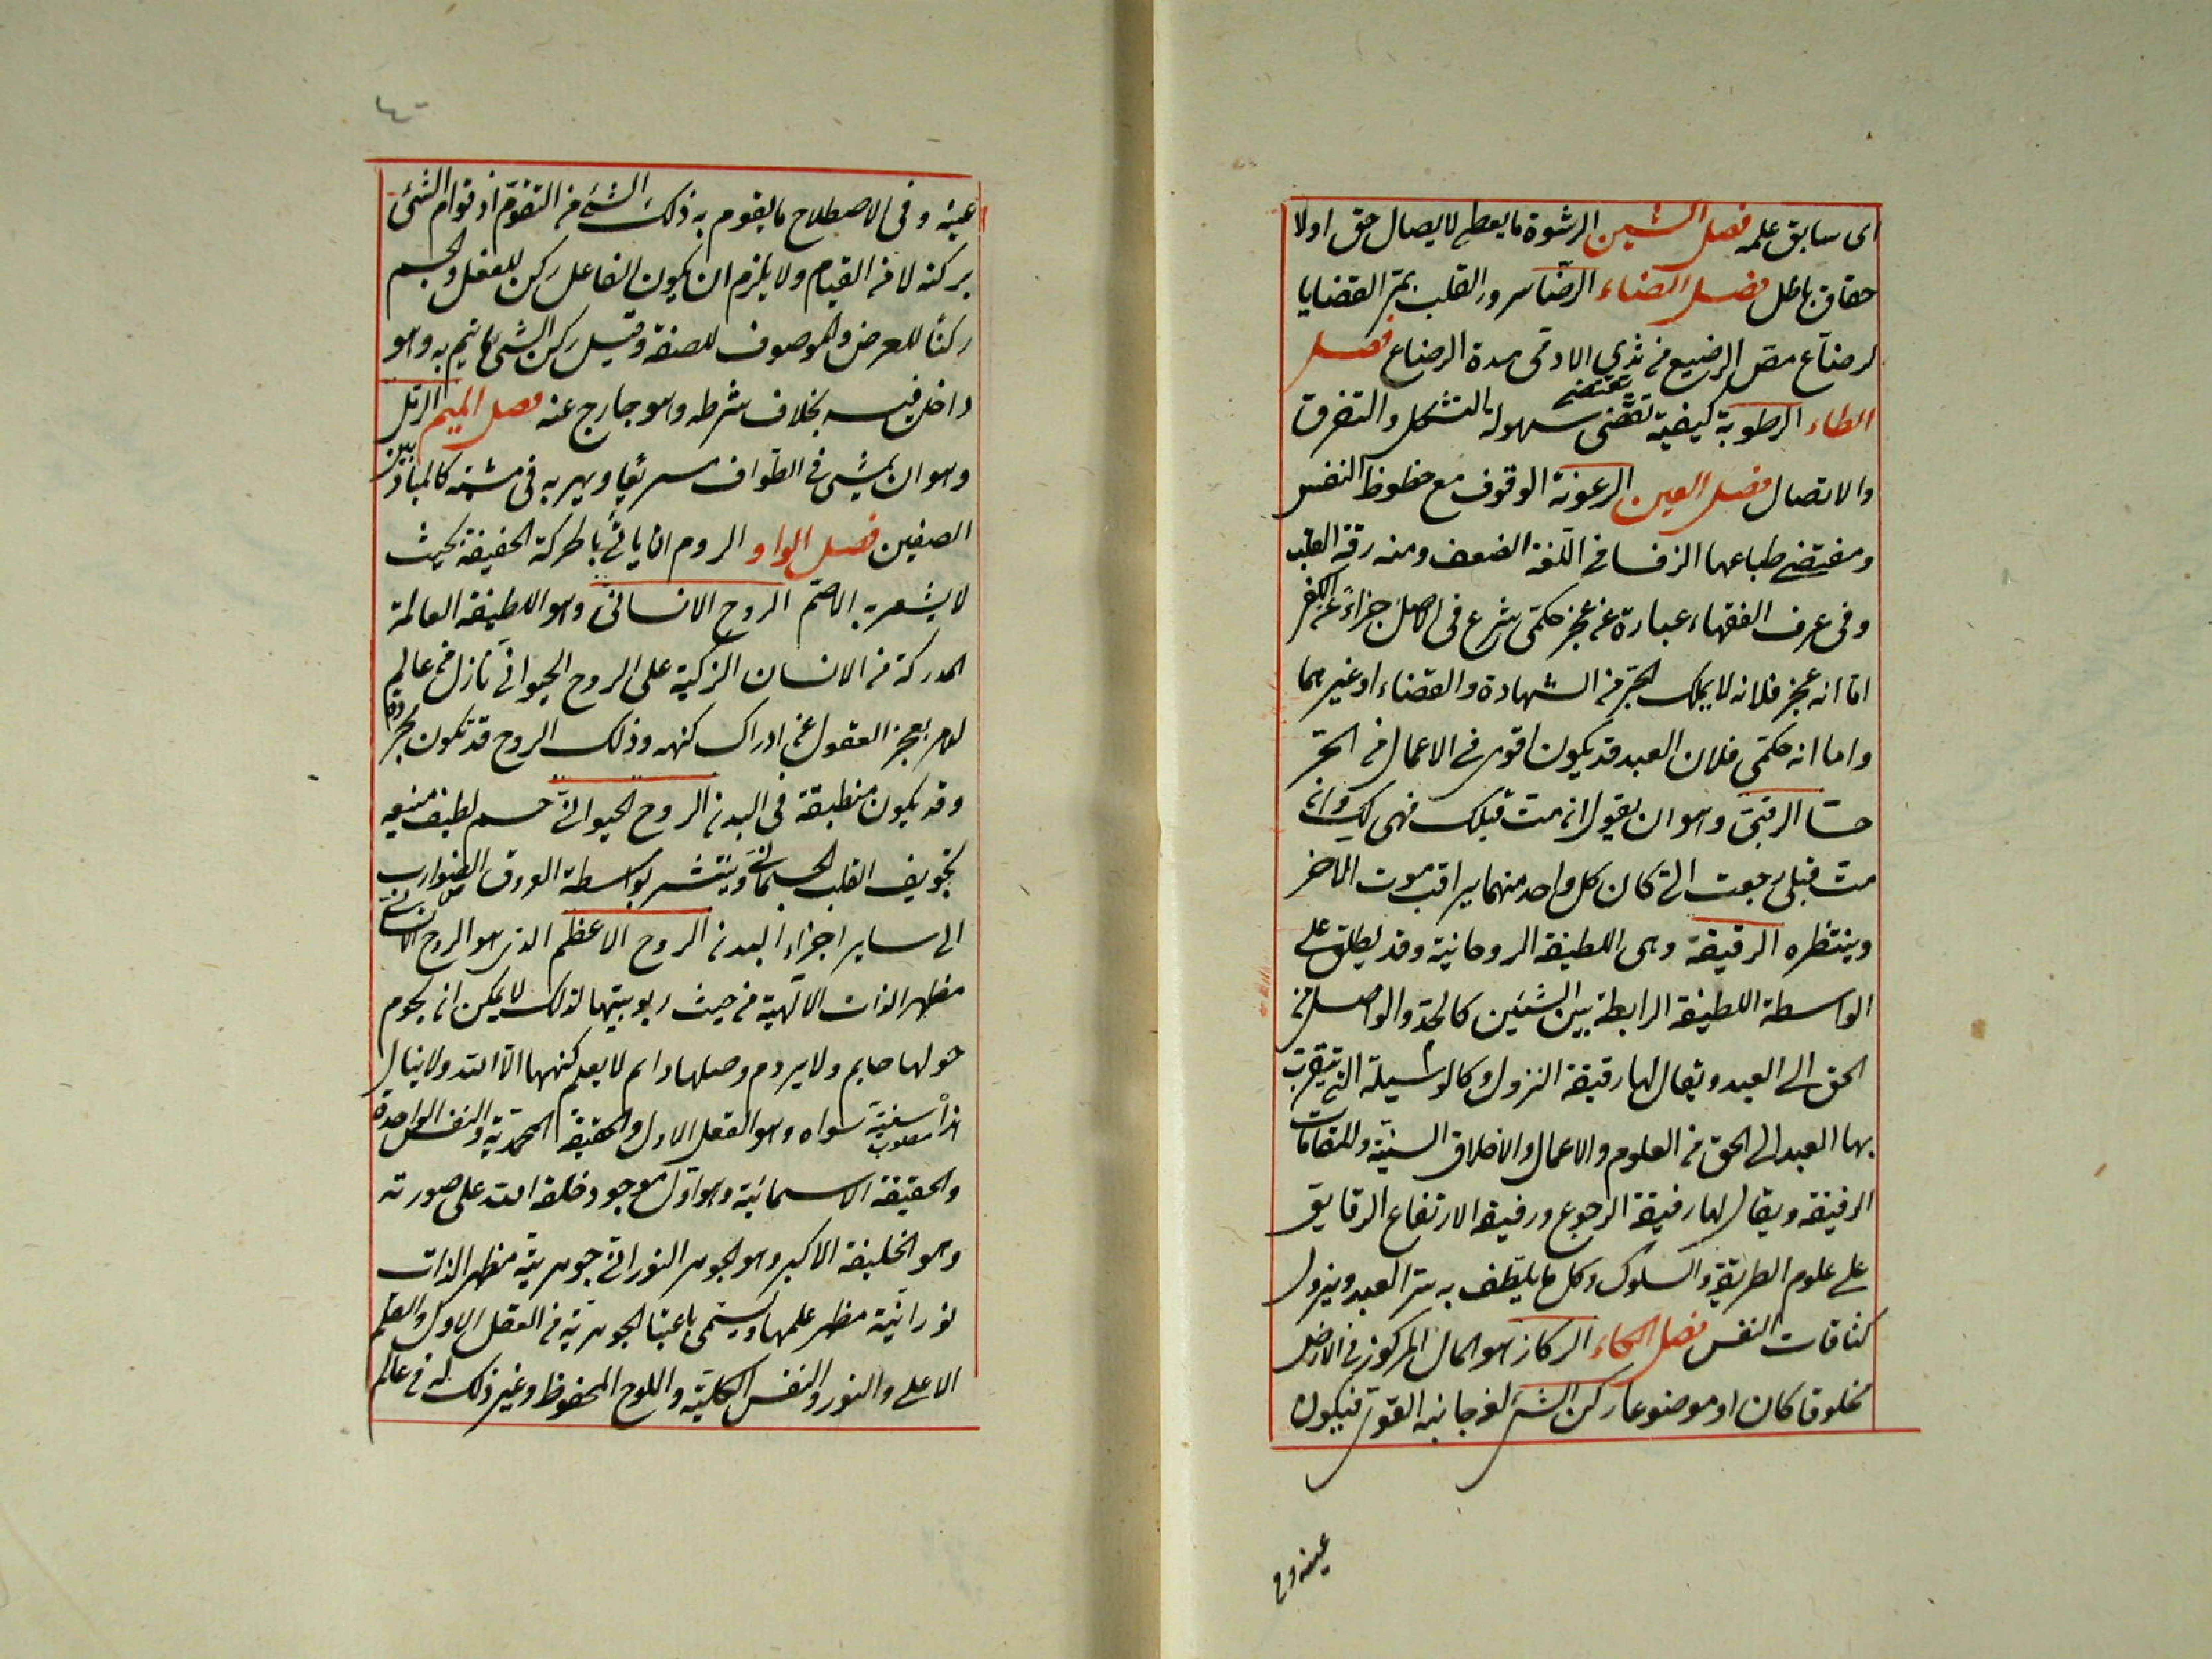 اى سابق علمه فصل الشين الرشوة ما يعطى لايصال حق اولا
حقاق باطل فصل الضاء الرضا سرور القلب بمر القضايا
لرضاع مص الرضيع من ثدى الادمى مدة الرضاع فصل
الطاء الرطوبة كيفية تقتضى سهولة التشكل والتفرق
تقتضى
والاتصال فصل العين الرعونة الوقوف مع حظوظ النفس
ومقتضى طباعها الرق فى اللغة الضعف ومنه رقة القلب
وفى عرف الفقهاء عبارة عن عجز حكمى شرع فى الاصل جزاء عن الكفر
اما انه عجز فلانه لا يملك الحر من الشهادة والقضاء او غيرهما
واما انه حكمى فلان العبد قد يكون اقوى فى الاعمال من الحر
حسا الرقبى وهو ان يقول ان مت قبلك فهى لك وان
مت قبلى رجعت الى كان كل واحد منهما يراقب موت الاخر
وينتظره الرقيقة وهى اللطيفة الروحانية وقد يطلق على
الواسطة اللطيفة الرابطة بين الشيئين كالمدد الواصل من
الحق الى العبد ويقال لها رقيقة النزول وكالوسيلة التى يتقرب
بها العبد الى الحق من العلوم والاعمال والاخلاق السنية والمقامات
الرفيقة ويقال لها رقيقة الرجوع ورقيقة الارتفاع الرقايق
على علوم الطريقة والسلوك وكل ما يلطف به سر العبد ويزول
كثافات النفس فصل الكاف الركاز هو المال المركوز فى الارض
مخلوقا كان او موضوعا ركن الشى لغة جانبه القوى فيكون
عينه وفى
عينه وفى الاصطلاح ما يقوم به ذلك الشئ من التقوم اذ قوام الشئ
بركنه لا من القيام ولا يلزم ان يكون الفاعل ركن للفعل والجسم
ركنا للعرض والموصوف للصفة وقيل ركن الشئ ما يتم به وهو
داخل فيه بخلاف شرطه وهو خارج عنه فصل الميم الرمل
وهو ان يمشى فى الطواف سريعا ويهز به فى مشيته كالمبارز بين
الصفين فصل الواو الروم ان ياتى بالحركة الخفيفة بحيث
لا يشعر به الاصم الروح الانسانى وهو اللطيفة العالمة
المدركة من الانسان الزكية على الروح الحيوانى نازل من عالم
الامر يعجز العقول عن ادراك كنهه وذلك الروح قد تكون مجردة
وقد يكون منطبقة فى البدن الروح الحيوانى جسم لطيف منبعه
تجويف القلب الجسمانى وينتشر بواسطة العروق الضوارب
الى ساير اجزاء البدن الروح الاعظم الذى هو الروح الانسانى
مظهر الذات الالهية من حيث ربوبيتها لذلك لا يمكن ان يحوم
حولها حايم ولا يروم وصلها رايم لا يعلم كنهها الا الله ولا ينال
هذا سواه وهو العقل الاول والحقيقة المحمدية والنفس الواحدة
والحقيقة الاسمائية وهو اول موجود خلقه الله على صورته
وهو الخليفة الاكبر وهو الجوهر النورانى جوهريته مظهر الذات
نورانية مظهر علمها ويسمى باعتبار الجوهرية من العقل الاول والقلم
الاعلى والنور والنفس الكلية واللوح المحفوظ وغير ذلك له فى عالم